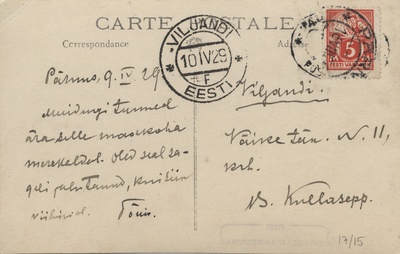 CARTE POSTALE
Correspondance
Adresse
VILJANDI
10 IV 29
F
EESTI
5
EESTI VABARIIK
Pärnus, 9. IV. 29
Muidugi tunned
ära selle maakoha
merekaldal. Oled seal sa-
geli jalutanud, kui siin
viibisid. Tõnu.
Viljandi.
Väike tän. N. 11,
krh.
B. Kullasepp.
17/15